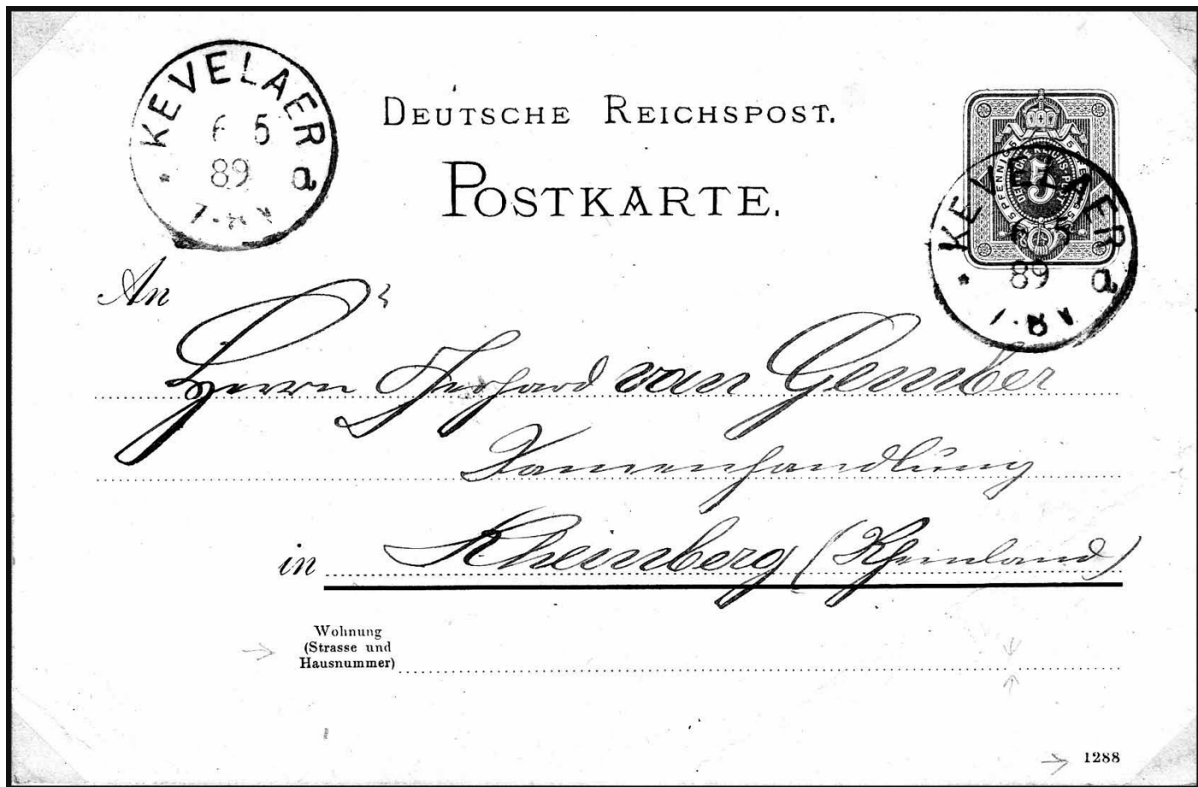 KEVELAER
6 5
89 a
7-8 V
DEUTSCHE REICHSPOST.
POSTKARTE.
5 PFENNIG 5
5
KEVELAER
6 5
89 a
7-8 V
An
Herrn Gerhard van Gember
Samenhandlung
in Rheinberg (Rheinland)
Wohnung
(Strasse und
Hausnummer)
1288